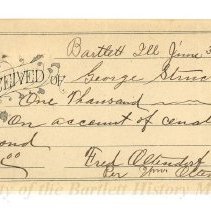 Bartlett Ill June
CEIVED OF George
One Thousand
On account of
ond
00 Fred Oltendorf
Per
ty of the Bartlett History M